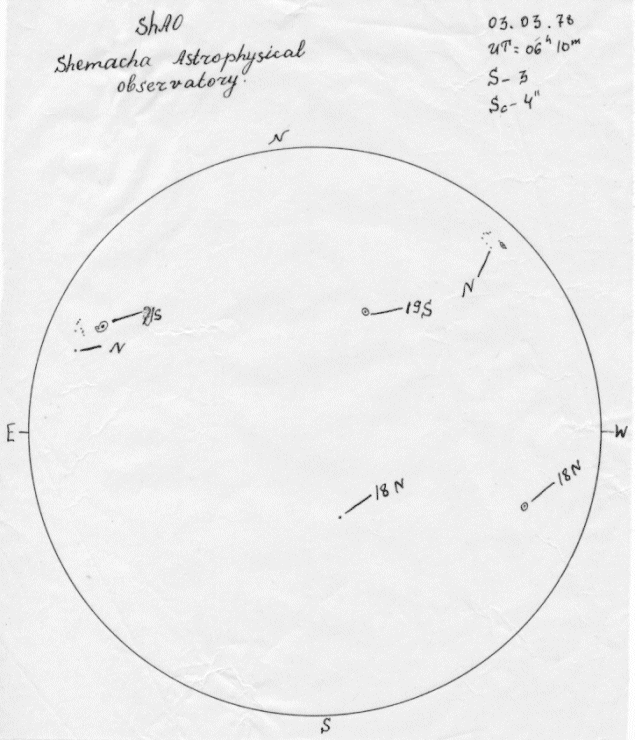 ShAO
Shemacha Astrophysical
observatory.
03.03.78
UT = 06ʰ 10ᵐ
S - 3
S₀ - 4"
N
N
19S
N
E
W
18 N
18 N
S